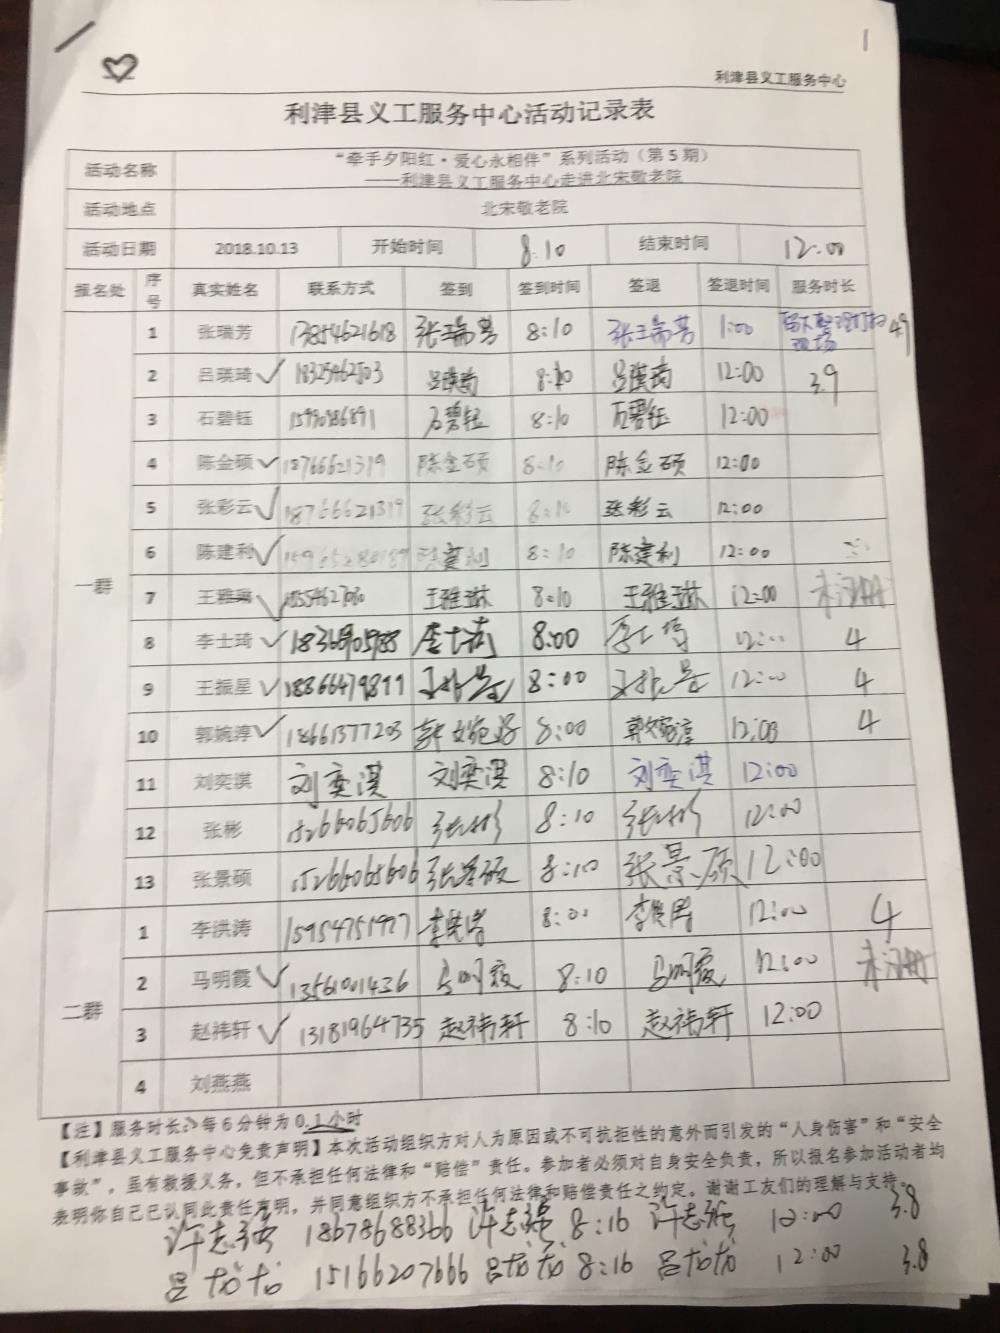 1
利津县义工服务中心
利津县义工服务中心活动记录表
活动名称 “牵手夕阳红·爱心永相伴”系列活动（第5期）
——利津县义工服务中心走进北宋敬老院
活动地点 北宋敬老院
活动日期 2018.10.13 开始时间 8:10 结束时间 12:00
报名处 序号 真实姓名 联系方式 签到 签到时间 签退 签退时间 服务时长
一群
1 张瑞芳 13854621618 张瑞芳 8:10 张瑞芳 1:00 留下整理打扫现场 4.9
2 吕瑛琦 吕瑛琦 8:10 吕瑛琦 12:00 3.9
3 石碧钰 石碧钰 8:10 石碧钰 12:00
4 陈金硕 18766621319 陈金硕 8:10 陈金硕 12:00
5 张彩云 18766621319 张彩云 8:10 张彩云 12:00
6 陈建利 陈建利 8:10 陈建利 12:00
7 王雅琳 王雅琳 8:10 王雅琳 12:00 未注册
8 李士琦 李士琦 8:00 李士琦 12:00 4
9 王振星 18866479811 王振星 8:00 王振星 12:00 4
10 郭婉淳 18661377203 郭婉淳 8:00 郭婉淳 12:00 4
11 刘奕淇 刘奕淇 刘奕淇 8:10 刘奕淇 12:00
12 张彬 15266065606 张彬 8:10 张彬 12:00
13 张景硕 15266065606 张景硕 8:10 张景硕 12:00
二群
1 李洪涛 15954751977 李洪涛 8:00 李洪涛 12:00 4
2 马明霞 13561001436 马明霞 8:10 马明霞 12:00 未注册
3 赵祎轩 13181964735 赵祎轩 8:10 赵祎轩 12:00
4 刘燕燕
【注】服务时长：每6分钟为0.1小时
【利津县义工服务中心免责声明】本次活动组织方对人为原因或不可抗拒性的意外而引发的“人身伤害”和“安全
事故”，虽有救援义务，但不承担任何法律和“赔偿”责任。参加者必须对自身安全负责，所以报名参加活动者均
表明你自己已认同此责任声明，并同意组织方不承担任何法律和赔偿责任之约定。谢谢工友们的理解与支持。
许志强 18678688366 许志强 8:16 许志强 12:00 3.8
吕尤尤 15166207666 吕尤尤 8:16 吕尤尤 12:00 3.8